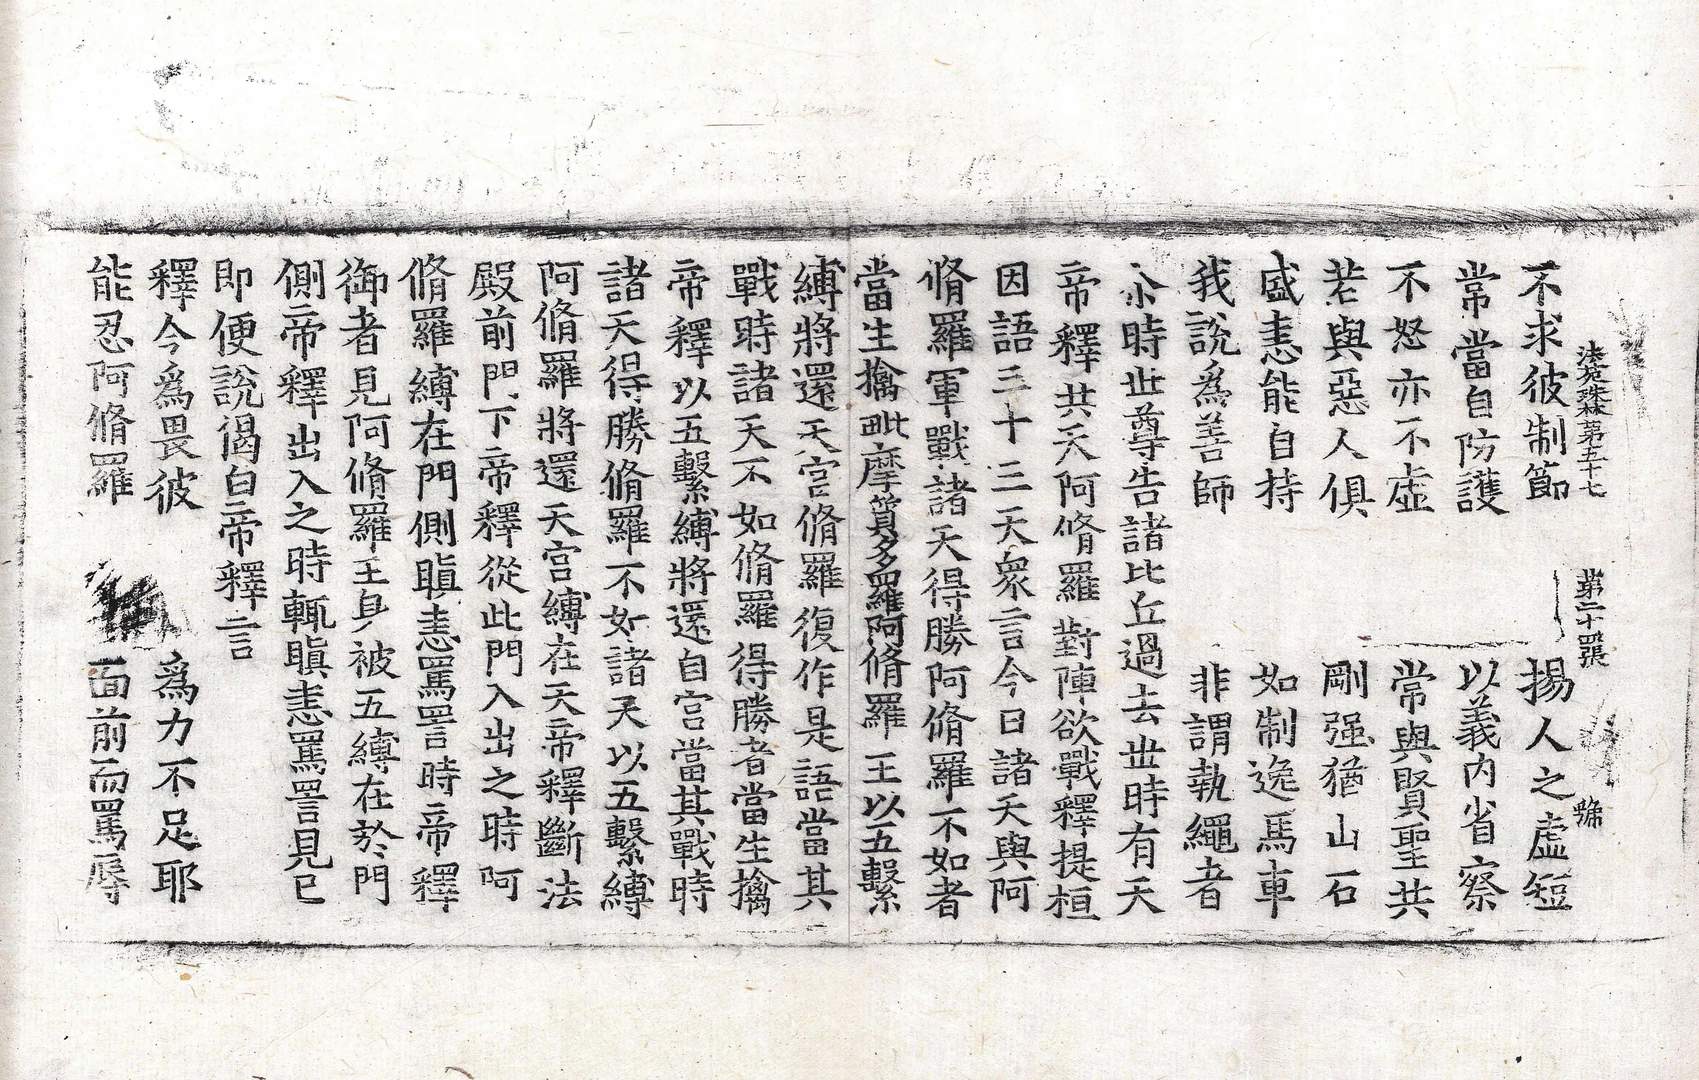 法苑珠林第五十七　第二十四張　號
不求彼制節　揚人之虛短
常當自防護　以義內省察
不怒亦不虛　常與賢聖共
若與惡人俱　剛强猶山石
盛恚能自持　如制逸馬車
我說爲善師　非謂執繩者
尒時世尊告諸比丘過去世時有天
帝釋共天阿脩羅對陣欲戰釋提桓
因語三十三天衆言今日諸天與阿
脩羅軍戰諸天得勝阿脩羅不如者
當生擒毗摩質多羅阿脩羅王以五繫
縛將還天宮脩羅復作是語當其
戰時諸天不如脩羅得勝者當生擒
帝釋以五繫縛將還自宮當其戰時
諸天得勝脩羅不如諸天以五繫縛
阿脩羅將還天宮縛在天帝釋斷法
殿前門下帝釋從此門入出之時阿
脩羅縛在門側瞋恚罵詈時帝釋
御者見阿脩羅王身被五縛在於門
側帝釋出入之時輒瞋恚罵詈見已
即便說偈白帝釋言
釋今爲畏彼　爲力不足耶
能忍阿脩羅　面前而罵辱